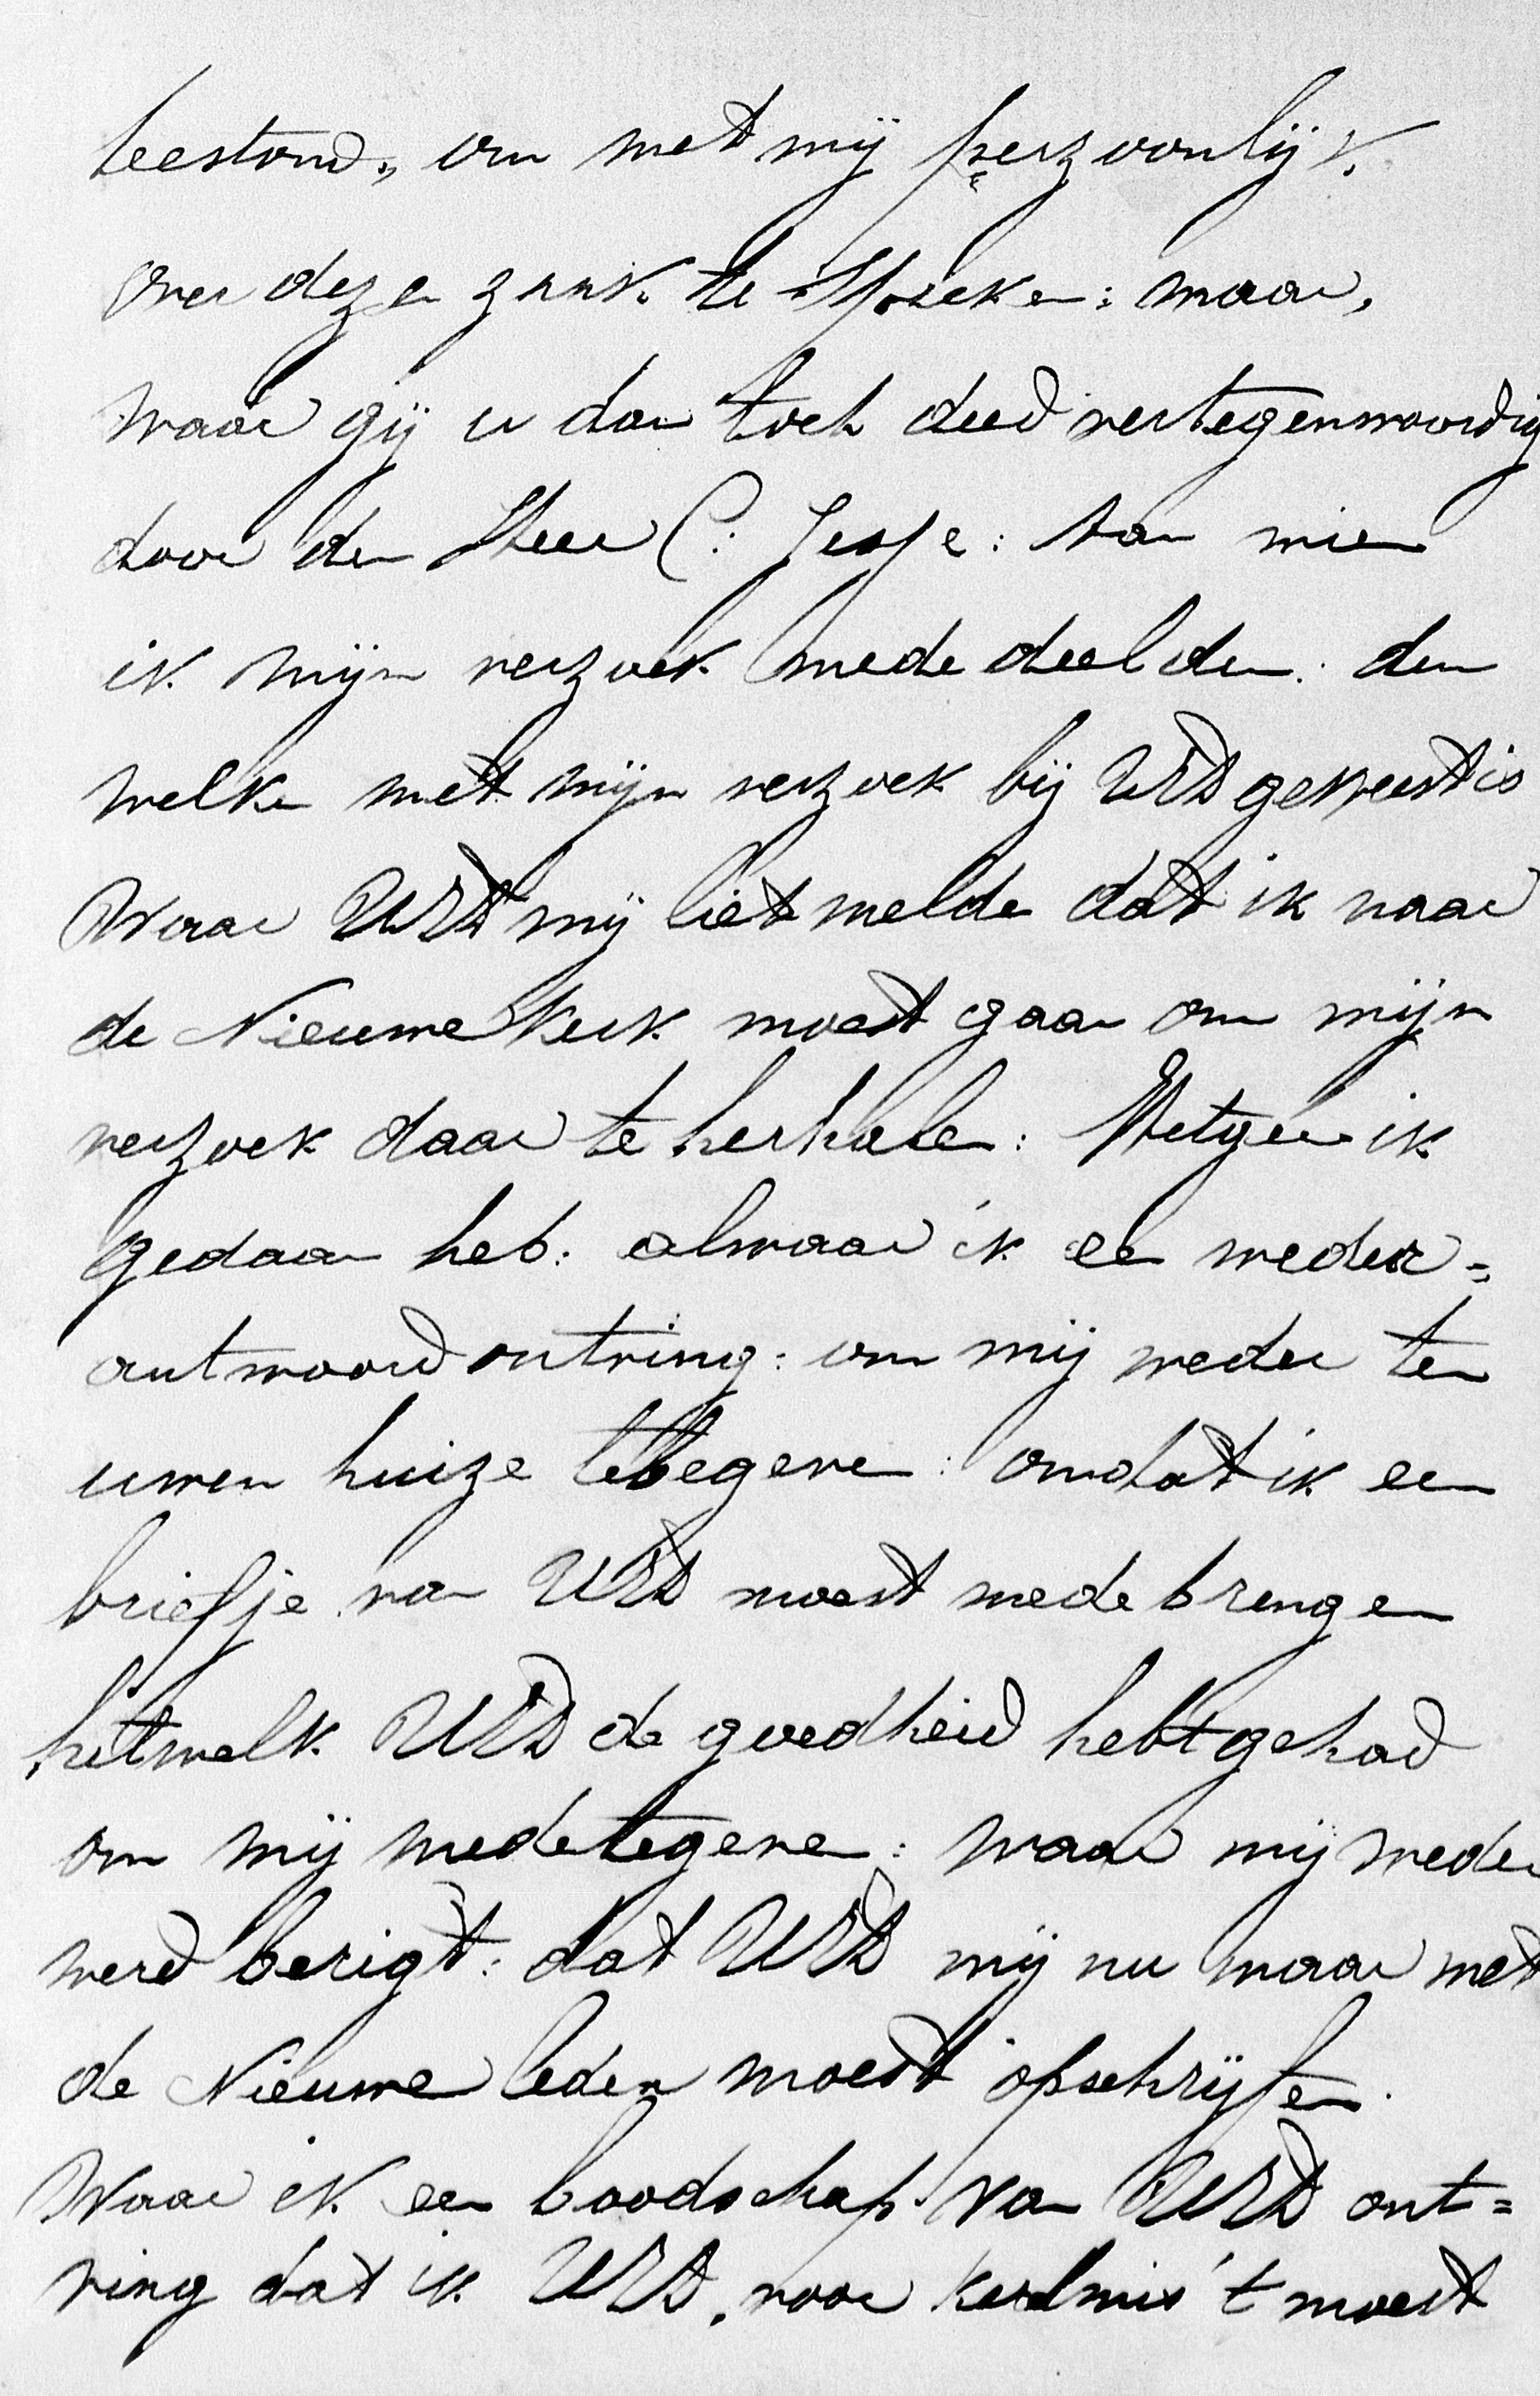 toestond, om met mij perzoonlijk.
over deze zaak te spreken: maar,
waar gij u dan toch deed vertegenwoordig
door den Heer C: Jesse: Aan wien
ik mijn verzoek mededeelden: den
welke met mijn verzoek bij UEd geweest is
Waar UEd mij liet melde dat ik naar
de Nieuwe Kerk moest gaan om mijn
verzoek daar te herhalen: Hetgeen ik
gedaan heb: alwaar ik een weder=
antwoord ontving: om mij weder ten
uwen huize tebegeven: omdat ik een
briefje van UEd moest mede brengen
hetwelk UEd de goedheid hebt gehad
om mij medetegeven: waar mij weder
werd berigt: dat UEd mij nu maar met
de Nieuwe leden moest opschrijfen.
Waar ik een boodschap van UEd ont=
ving dat ik UEd, voor kerkmis 't moest